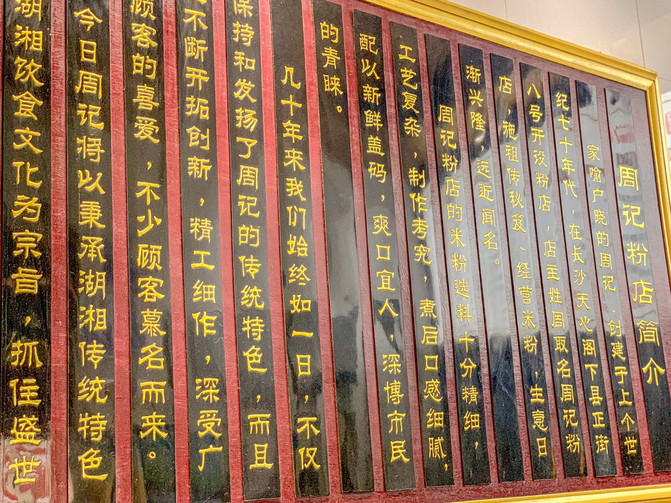 周记粉店简介
家喻户晓的周记,创建于上个世
纪七十年代,在长沙天心阁下县正街
八号开设粉店,店主姓周取名周记粉
店,施祖传秘笈、经营米粉,生意日
渐兴隆,远近闻名。
周记粉店的米粉选料十分精细,
工艺复杂,制作考究,煮后口感细腻,
配以新鲜盖码,爽口宜人,深博市民
的青睐。
几十年来我们始终如一日,不仅
保持和发扬了周记的传统特色,而且
不断开拓创新,精工细作,深受广
顾客的喜爱,不少顾客慕名而来。
今日周记将以秉承湖湘传统特色
湖湘饮食文化为宗旨,抓住盛世